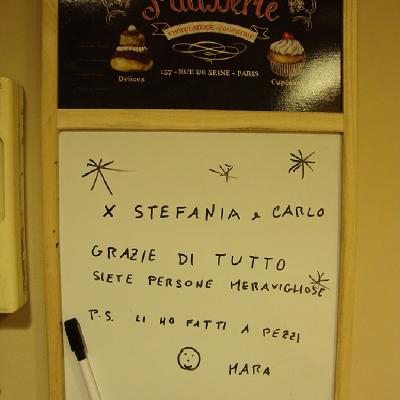 Patisserie
CHOCOLATERIE - CONFISERIE
157 - RUE DE SEINE - PARIS
Délices
Cupcake
X STEFANIA e CARLO
GRAZIE DI TUTTO
SIETE PERSONE MERAVIGLIOSE
P.S. LI HO FATTI A PEZZI
MARA